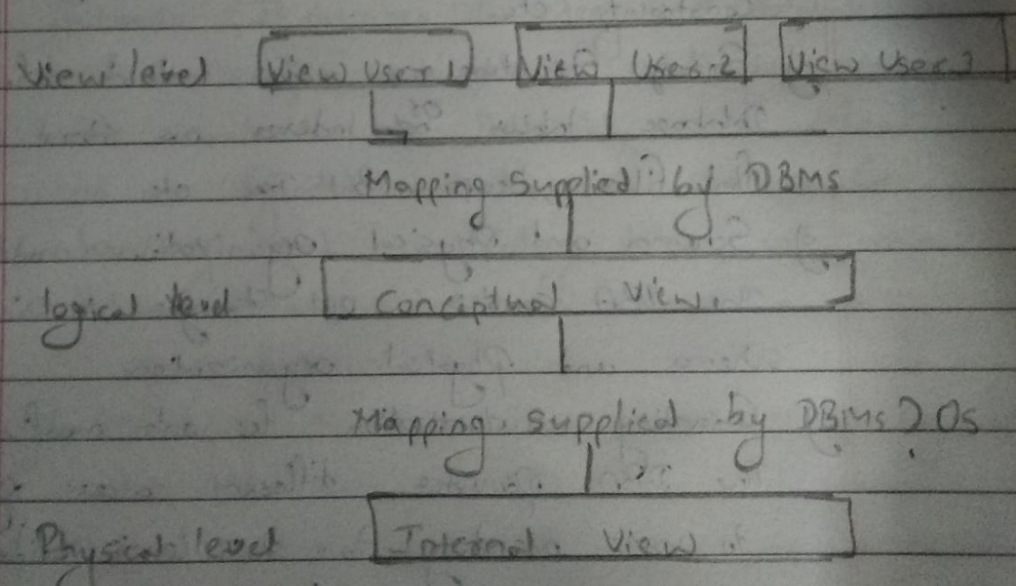 View level View User 1 View User 2 View User 3
Mapping Supplied by DBMS
logical level Conciptual View.
Mapping supplied by DBMS OS
Physical level Internal View.